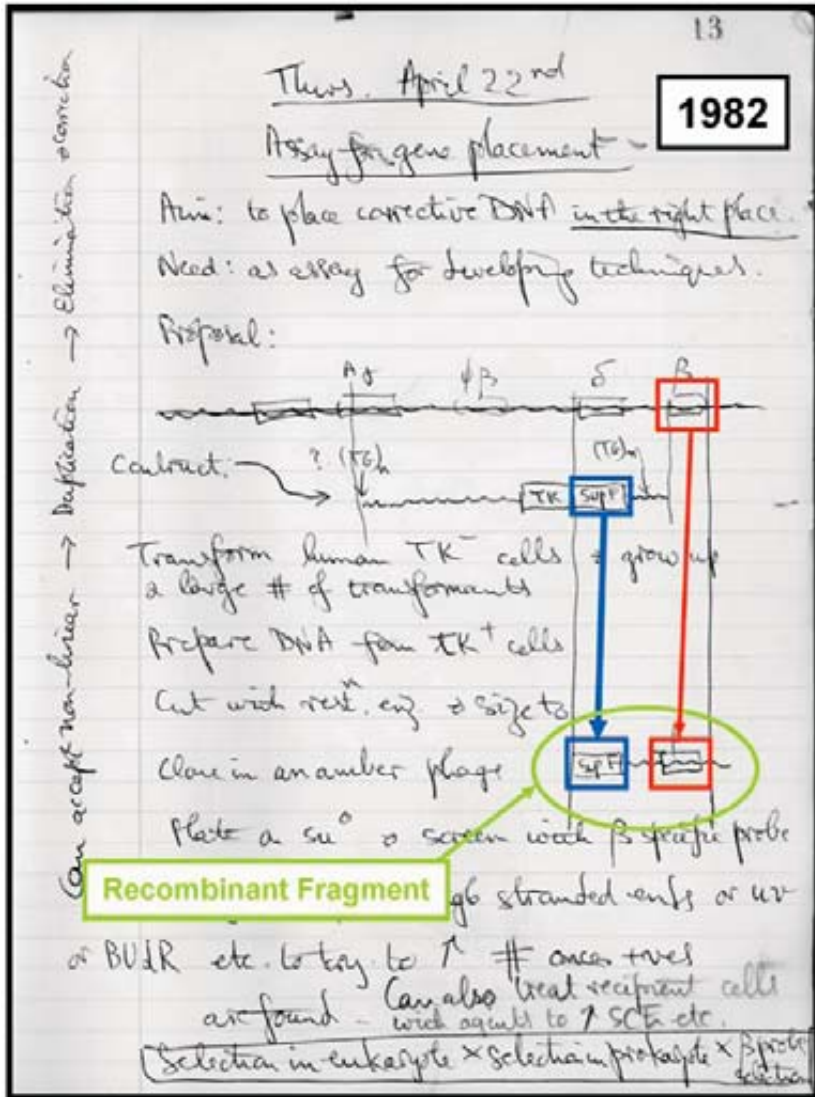 13
Thurs. April 22nd
1982
Assay for gene placement -
Aim: to place corrective DNA in the right place.
Need: as assay for developing techniques.
Proposal:
Aγ ψβ δ β
Construct: ? (TG)n (TG)n
TK SupF
Transform human TK- cells & grow up
a large # of transformants
Prepare DNA from TK+ cells
Cut with restn. enz. & size to
Clone in an amber phage
SupF
Plate on su° & screen with β specific probe
Recombinant Fragment
stranded ends or uv
or BUdR etc. to try to ↑ # once +ves
are found - Can also treat recipient cells
with agents to ↑ SCE etc.
Selection in eukaryote × selection in prokaryote × β probe
selection
Can accept non-linear → Duplication → Elimination & correction